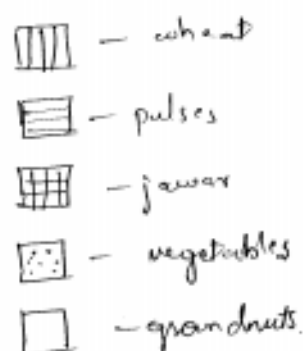 - wheat
- pulses
- jawar
- vegetables
- grandnuts.